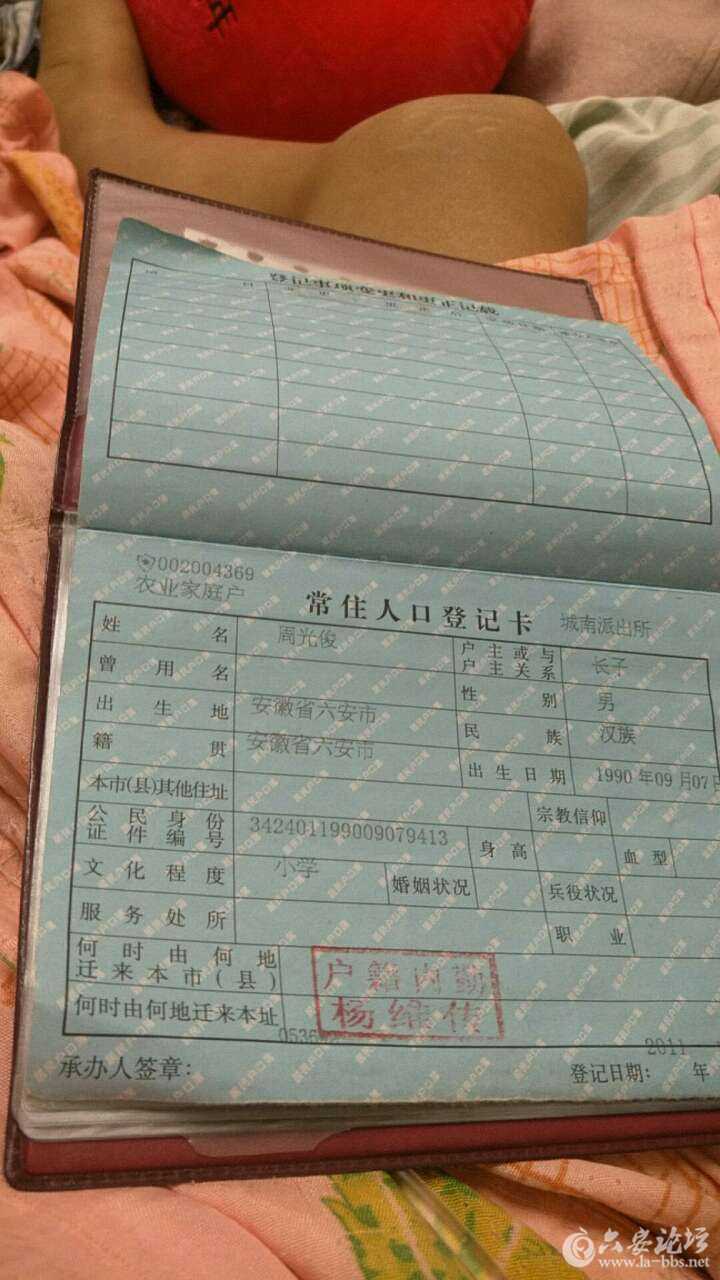 年
登记事项变更和更正记载
002004369
农业家庭户
常住人口登记卡 城南派出所
姓名 周光俊 户主或与户主关系 长子
曾用名 性别 男
出生地 安徽省六安市 民族 汉族
籍贯 安徽省六安市 出生日期 1990年09月07日
本市(县)其他住址 宗教信仰
公民身份证件编号 342401199009079413 身高 血型
文化程度 小学 婚姻状况 兵役状况
服务处所 职业
何时由何地迁来本市(县)
户籍内勤
杨维传
何时由何地迁来本址
2011
承办人签章: 登记日期: 年
六安论坛
www.la-bbs.net